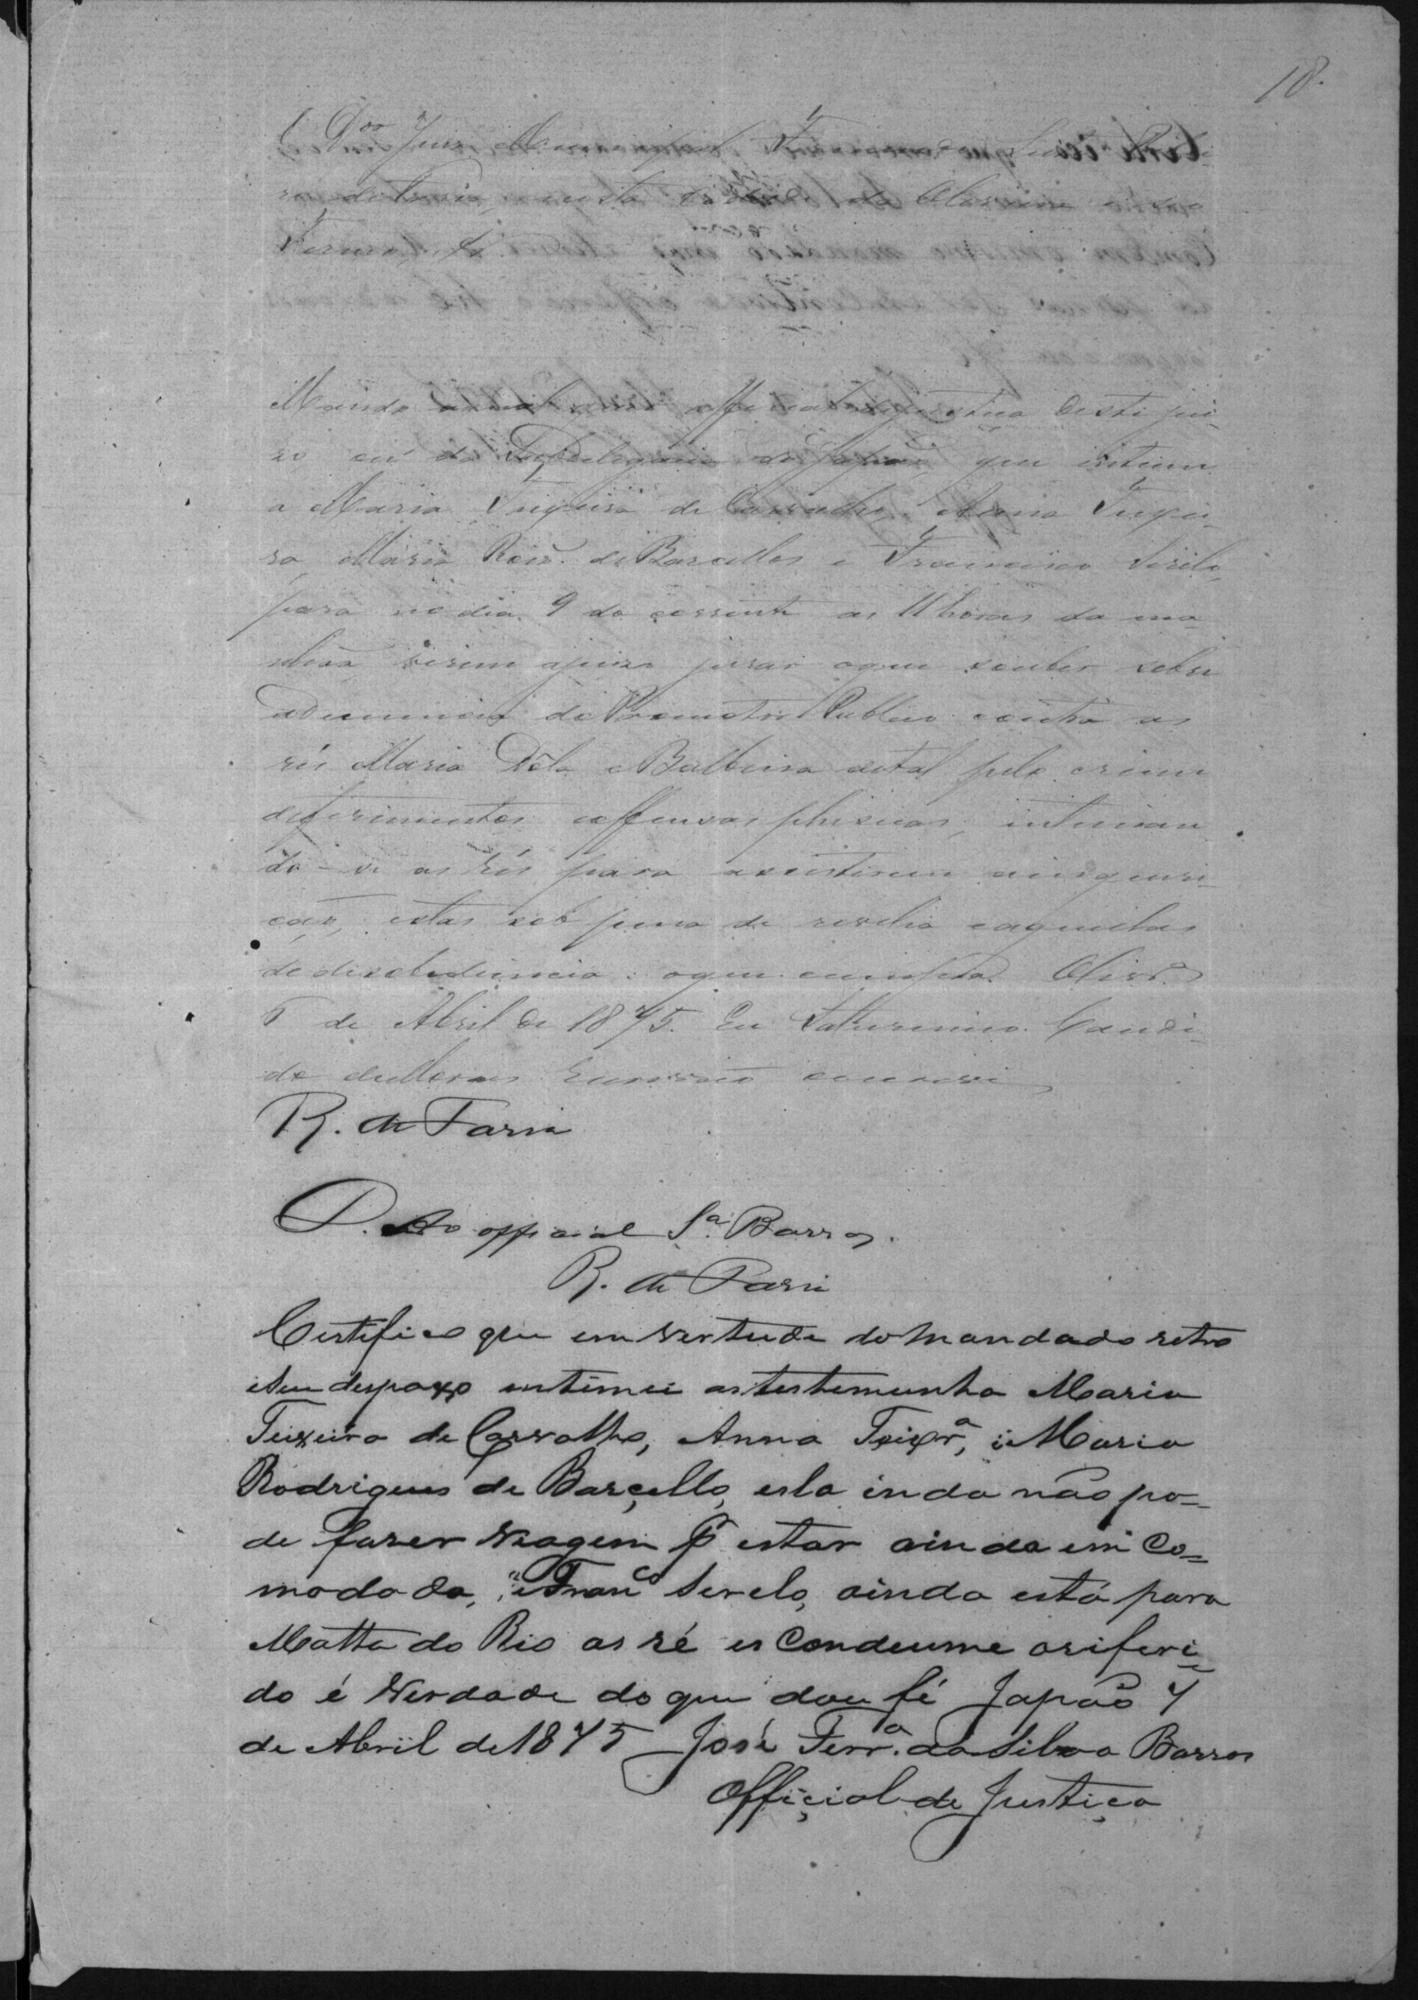 18.
O Dor Juiz Municipal
Ferreira &
Mando a official de justiça deste jui-
zo ou da Subdelegacia do Japão, que intime
a Maria Teixeira de Carvalho, Anna Teixei-
ra Maria Roiz. de Barcellos e Francisco Sirilo,
para no dia 9 do corrente as 11 horas da ma-
nhãa virem a juizo jurar oque souber sobre
adenuncia do Promotor Publico contra as
rés Maria Rola e Balbina de tal pelo crime
deferimentos e offensas phisicas, intiman
do-se as rés para assistirem ainqueri-
ção, estas sob pena de revelia eaquellas
dedesobediencia. oque cumpra. Olivrª
6 de Abril de 1875. Eu Saturnino Candi-
do de Moraes Escrivão escrevi
R. de Faria
D. Ao official Sª. Barros.
R. de Faria
Certifico que em vertude do Mandado retro
eseu despaxo intimei astestemunha Maria
Teixeira de Carvalho, Anna Teixrª, i Maria
Rodrigues de Barçello, esta inda não po=
de fazer viagem Pr estar ainda em Co=
modada, e Francº Serelo, ainda está para
Matta do Rio as ré escondeume oriferi=
do é Verdade do que dou fé Japão 7
de Abril de 1875 José Ferrª. da Silva Barros
Offiçial de Justiça